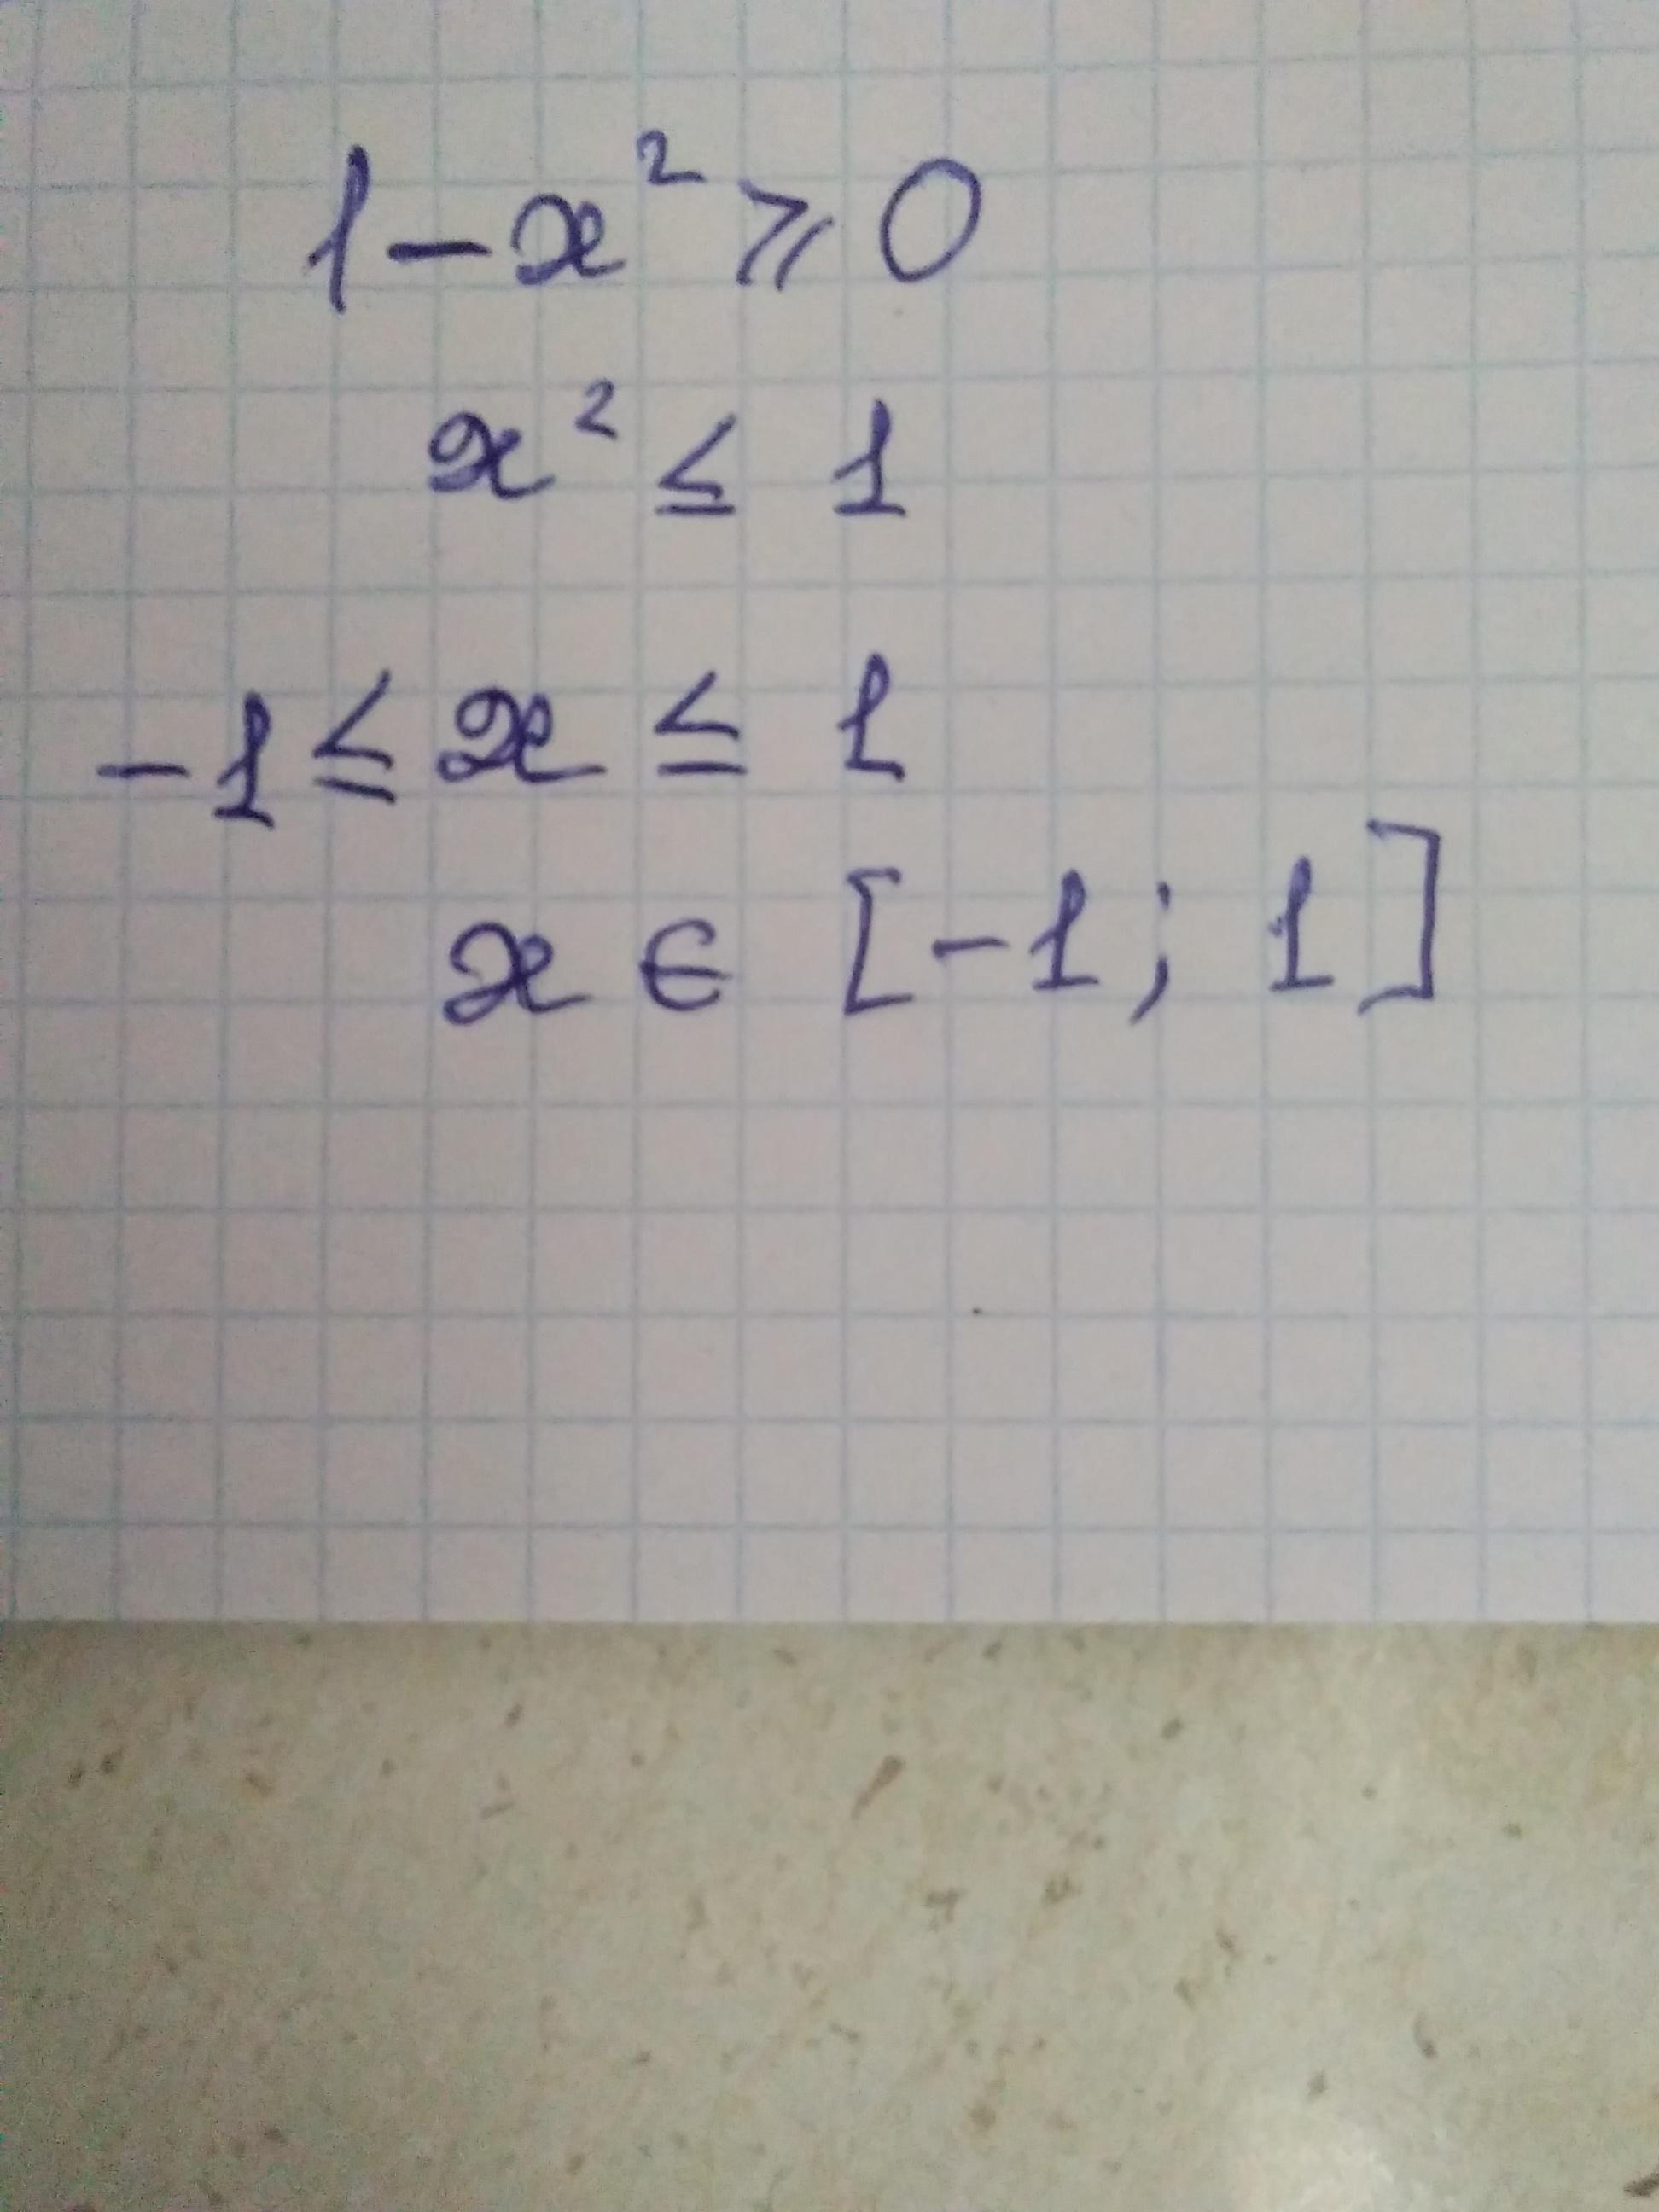 1 - x² ⩾ 0
x² ≤ 1
-1 ≤ x ≤ 1
x ∈ [-1; 1]